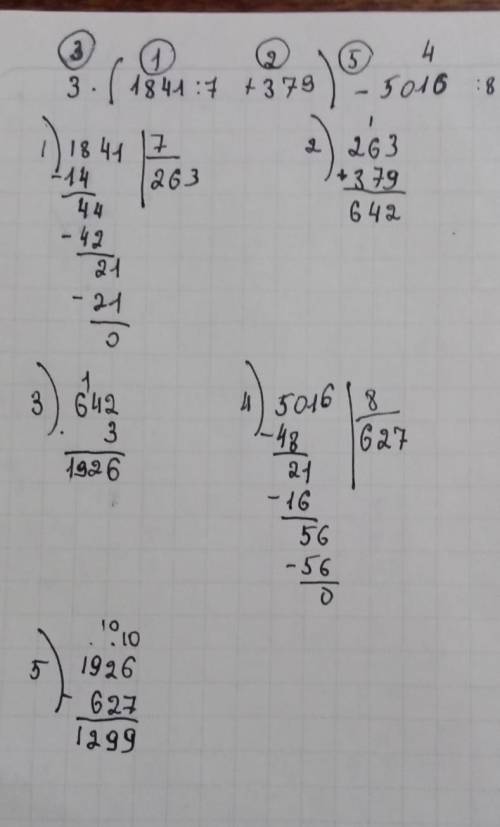 3 1 2 5 4
3 · ( 1841 : 7 + 379 ) - 5016 : 8
1) 1841 7
-14 263
44
-42
21
-21
0
2) 1
263
+379
642
3) 1
642
· 3
1926
4) 5016 8
-48 627
21
-16
56
-56
0
5) . 10 . 10
1926
- 627
1299